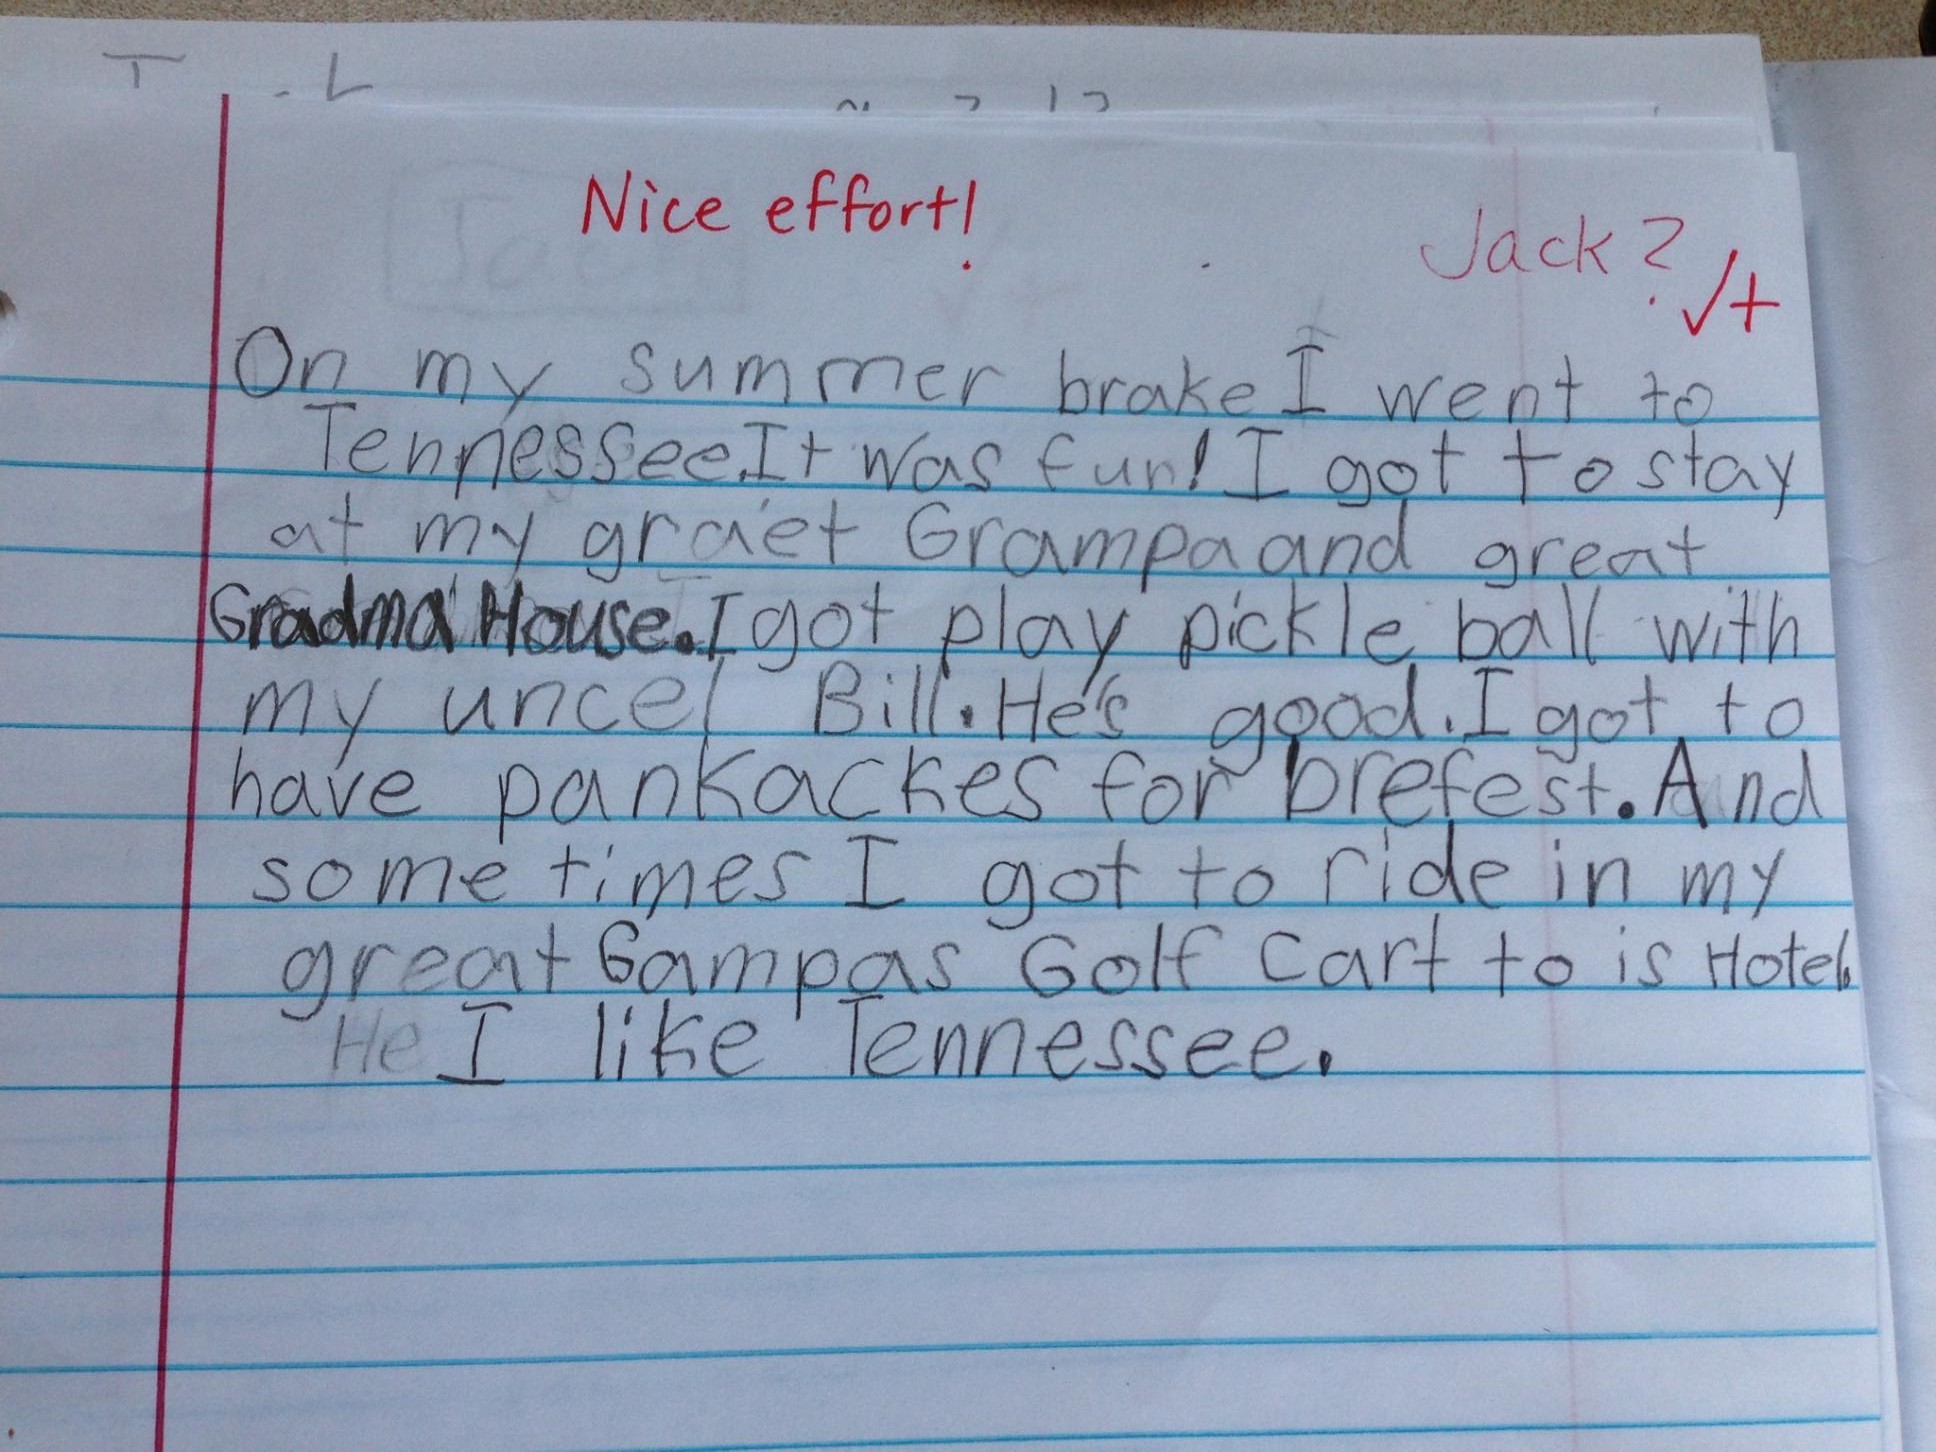 Nice effort!
Jack?
√+
On my summer brake I went to
Tennessee. It was fun! I got to stay
at my graet Grampa and great
Gradma House. I got play pickle ball with
my uncel Bill. He's good. I got to
have pankackes for brefest. And
some times I got to ride in my
great Gampas Golf Cart to is Hotel.
He I like Tennessee.